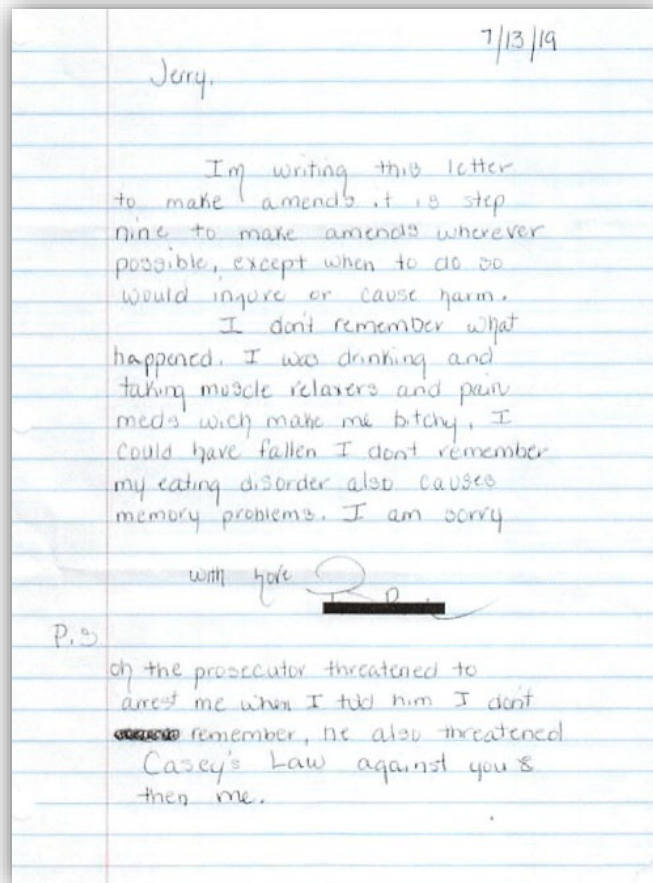 7/13/19
Jerry,
Im writing this letter
to make amends it is step
nine to make amends wherever
possible, except when to do so
would ingure or cause harm.
I don't remember what
happened. I was drinking and
taking muscle relaxers and pain
meds wich make me bitchy, I
could have fallen I dont remember
my eating disorder also causes
memory problems. I am sorry
with
P.S
oh the prosecutor threatened to
arrest me when I told him I don't
remember, he also threatened
Casey's Law against you &
then me.